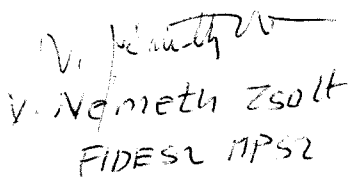 V. Németh Zsolt
FIDESZ MPSZ